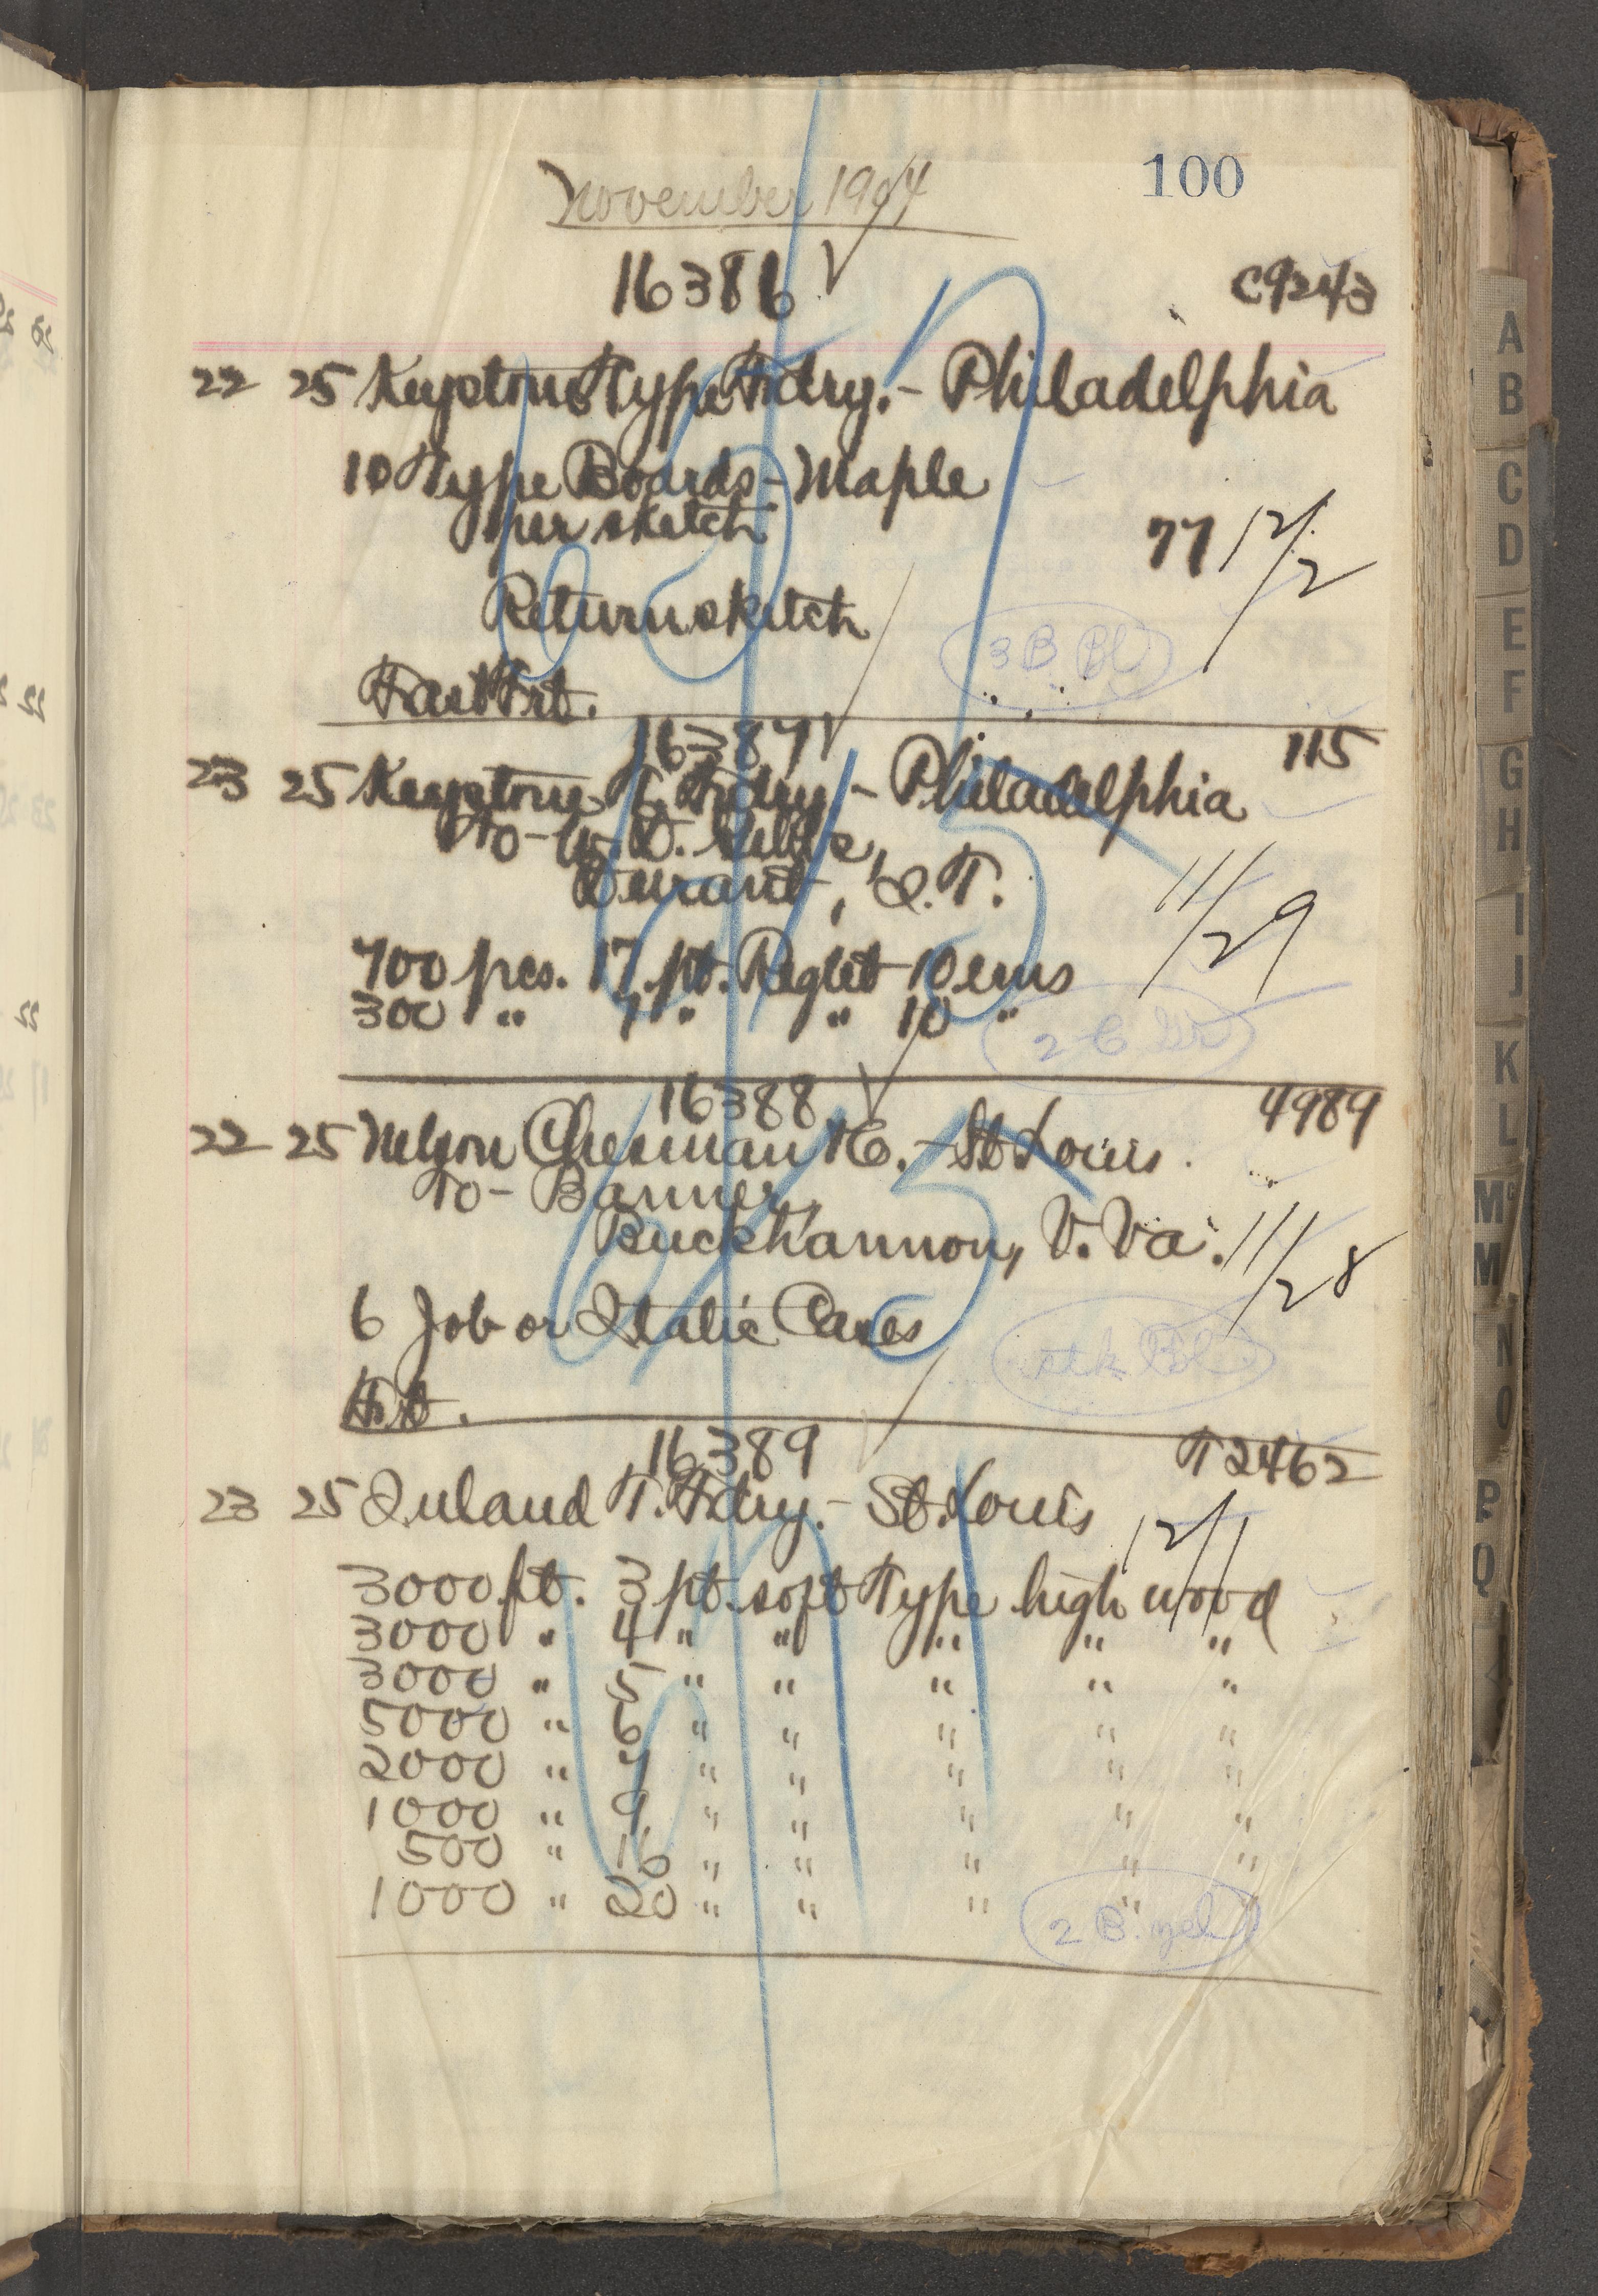 100
November 1904
16386 C9243
22 25 Keystone Type Fdry. - Philadelphia
10 Type Boards - Maple
per sketch
77 12/2
Return sketch
3 B Bl
Fast Frt.
16387 115
23 25 Keystone T. Fdry. - Philadelphia
To - W. D.
Durant, I. T.
11/29
700 pcs. 17 pt. Reglet 10 ems
300 " 7 " " 10 "
2 C Gr
16388 4989
22 25 Nelson Chesman & Co. - St Louis
To - Banner,
Buckhannon, V. Va.
11/28
6 Job or Italic Cases
stk Bl
Frt.
16389 T2462
23 25 Inland T. Fdry. - St. Louis
12/1
3000 ft. 3 pt. soft Type high wood
3000 " 4 " " " " "
3000 " 5 " " " " "
5000 " 6 " " " " "
2000 " 7 " " " " "
1000 " 9 " " " " "
500 " 16 " " " " "
1000 " 20 " " " " "
2 B. yel
A
B
C
D
E
F
G
H
I
J
K
L
Mc
M
N
O
P
Q